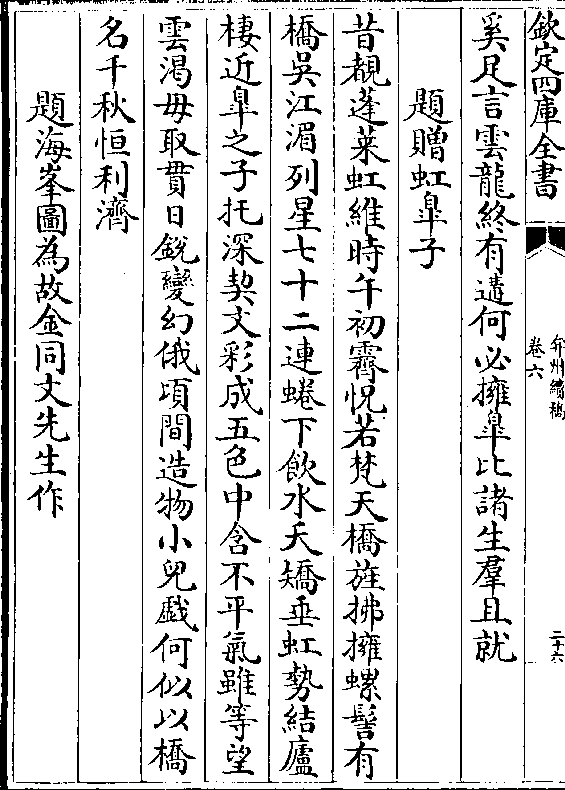 欽定四庫全書
弇州續稿
卷六
二十六
奚足言雲龍終有遘何必擁臯比諸生羣且就
題贈虹臯子
昔覩蓬萊虹維時午初霽怳若梵天橋旌拂擁螺髻有
橋吳江湄列星七十二連蜷下飲水夭矯垂虹勢結廬
棲近臯之子托深契文彩成五色中含不平氣雖等望
雲渴毋取貫日銳變幻俄頃間造物小兒戲何似以橋
名千秋恒利濟
題海峯圖為故金同文先生作